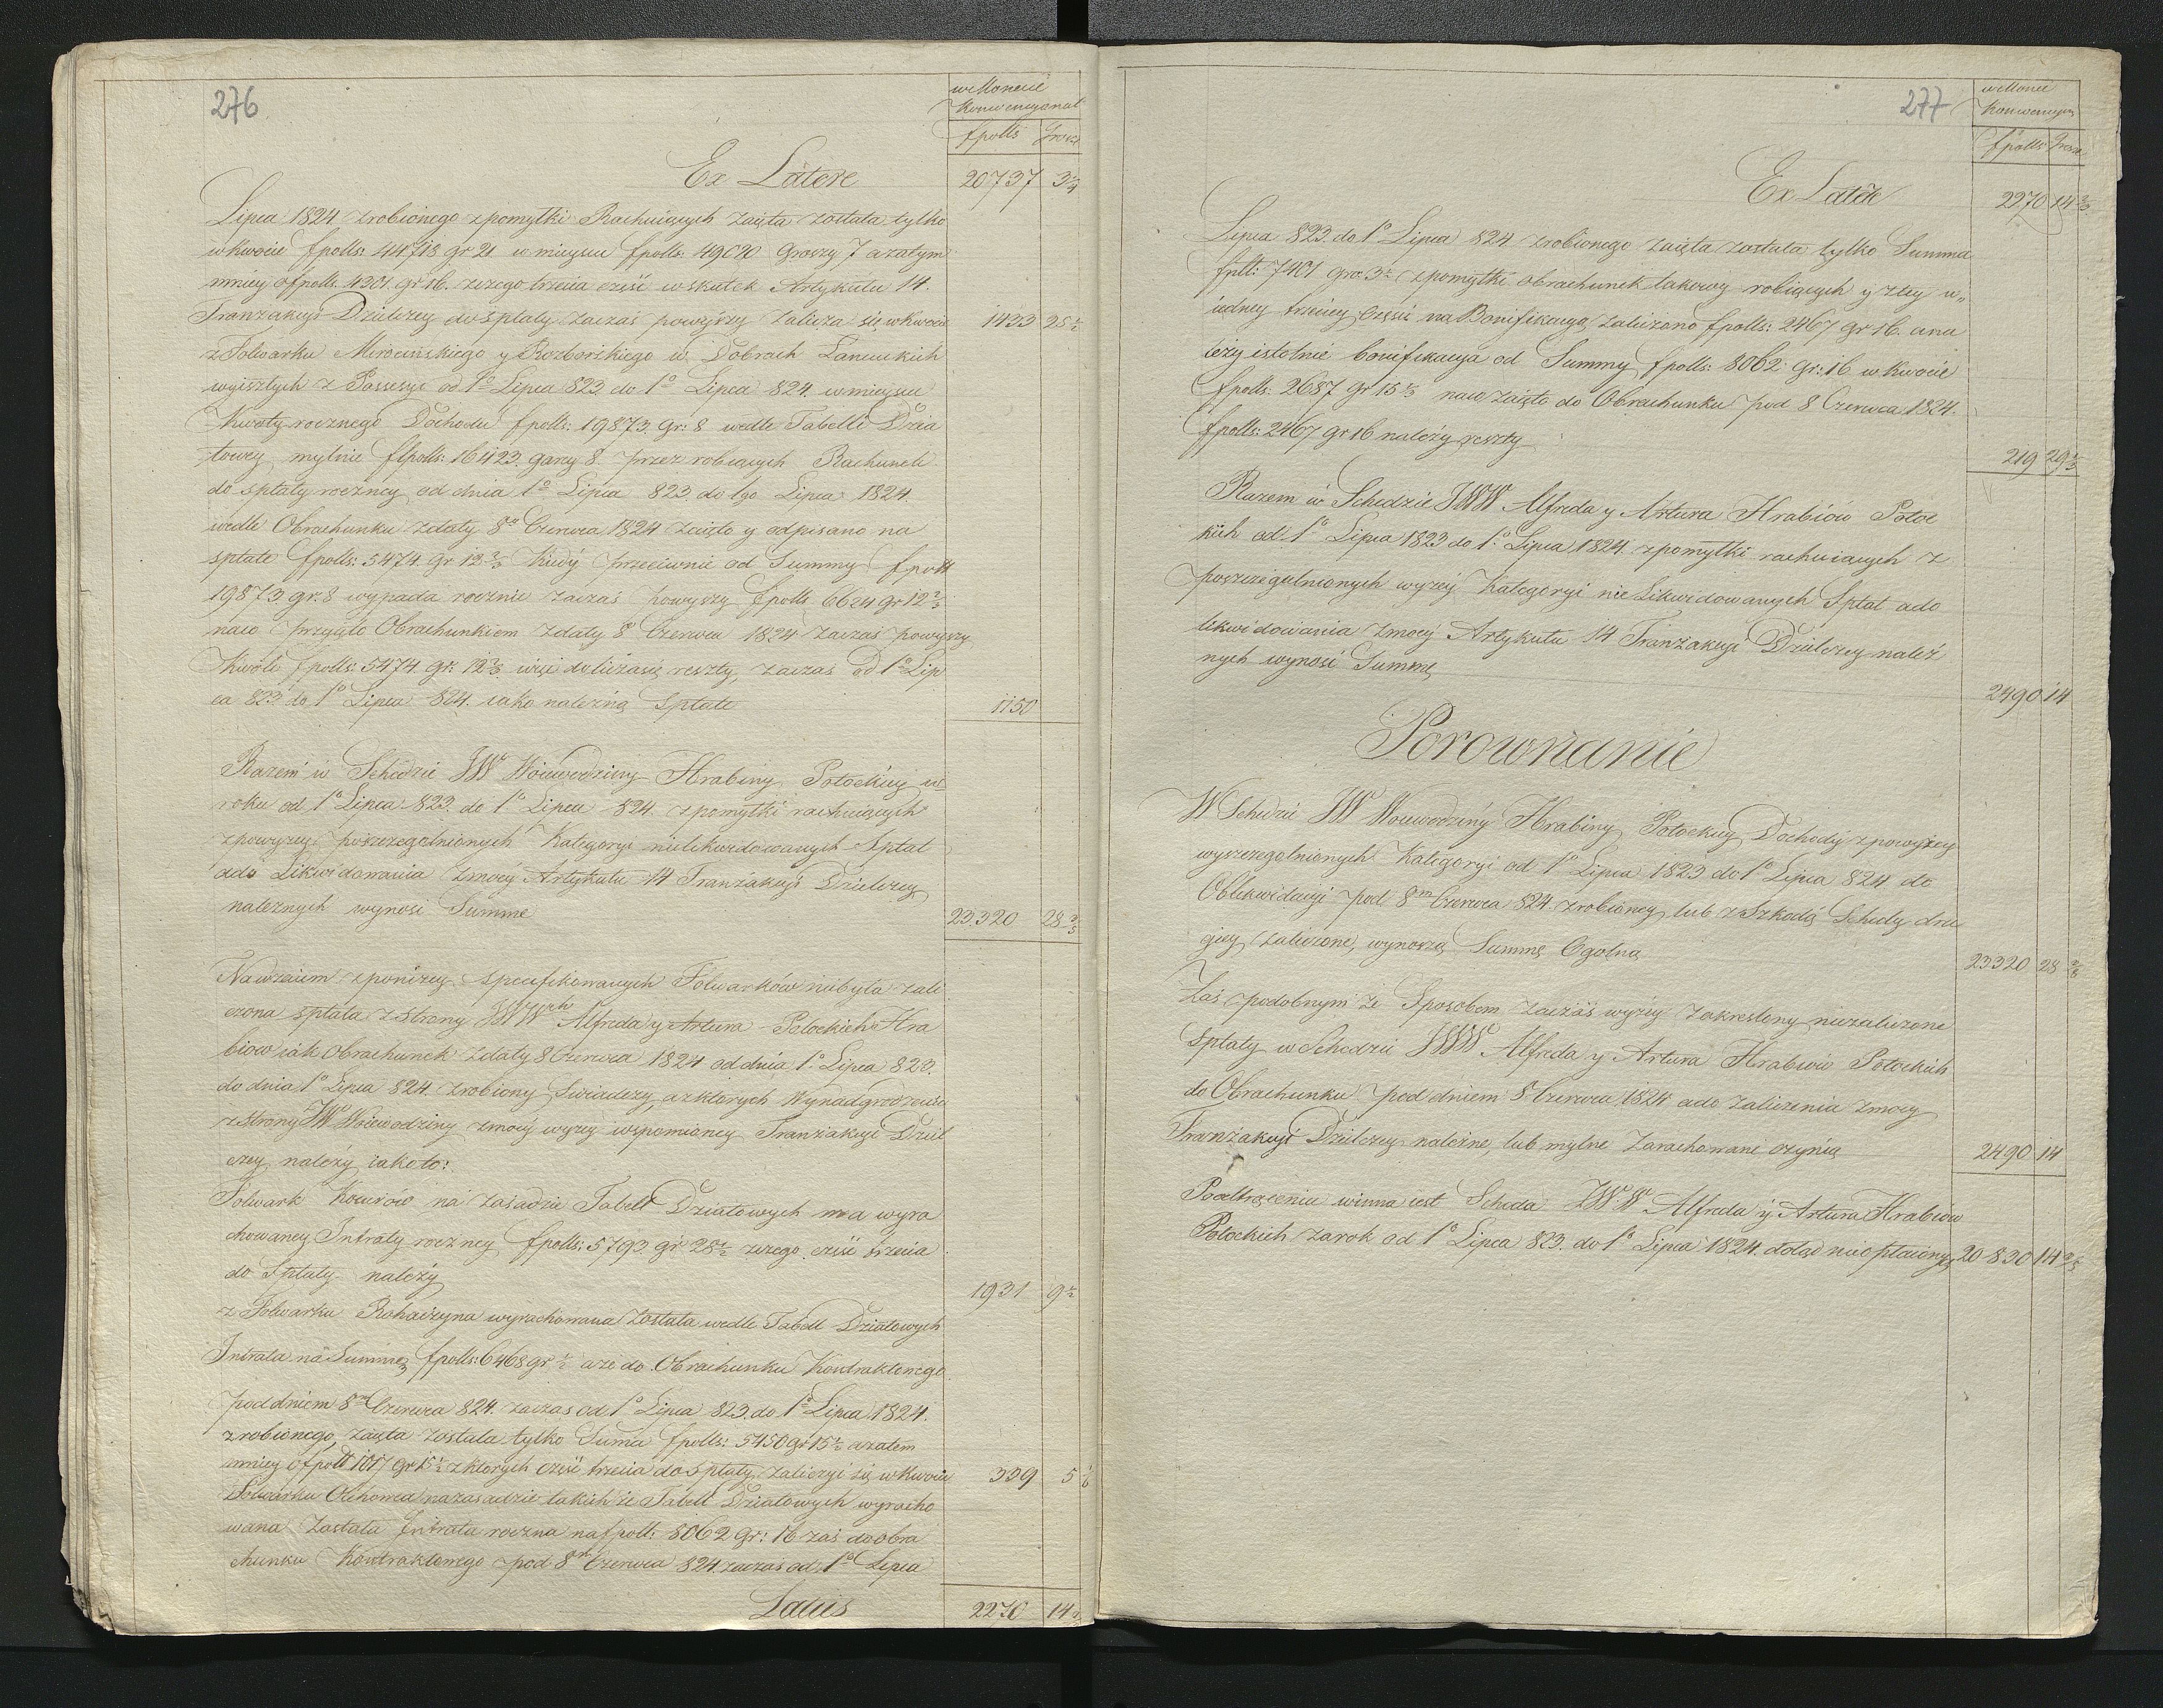 276
w Monecie
Konwencyonal
fpolls Grosze
Ex Latere 20737 3 1/4
Lipca 1824 zrobionego z pomyłki Rachuiących zaięta została tylko
w kwocie fpolls: 44718 gr 21 w mieyscu fpolls: 49020 Groszy 7 a zatym
mniey o fpolls. 4301. gr 16. z czego trzecia część w skutek Artykułu 14.
Tranzakcyi Dzielczey do spłaty za czas powyższy zalicza się w kwocie 1433 25 1/2
z Folwarku Mirocinskiego y Rozborskiego w Dobrach Łancuckich
wyiszłych z Possesyi od 1o Lipca 823 do 1o Lipca 824. w mieyscu
Kwoty rocznego Dochodu fpolls: 19873. gr: 8 wedle Tabelli Dzia
łowey mylnie fpolls: 16423. 8 przez robiących Rachunek
do spłaty roczney od dnia 1o Lipca 823. do 1go Lipca 1824.
wedle Obrachunku z daty 8m Czerwca 1824 zaięto y odpisano na
spłate fpolls: 5474. gr 12 2/3 kiedy przeciwnie od Summy fpoll
19873, gr: 8 wypada rocznie za czas powyszy fpolls 6624 gr 12 2/3
naco przyięto Obrachunkiem z daty 8 Czerwca 1824 za czas powyszy
Kwote fpolls: 5474. gr: 12 2/3. więc dolicza się reszty, za czas od 1o Lip
ca 823 do 1o Lipca 824. iako należną spłate 1150
Razem w Schedzie JW Woiewodziny Hrabiny Potockiey w
roku od 1o Lipca 823. do 1o Lipca 824. z pomyłki rachuiących
z powyzey poszczegolnionych Kategoryi nielikwidowanych Spłat
a do Likwidowania z mocy Artykułu 14 Tranzakcyi Dzielczey
należnych wynosi Summe 23320 28 2/3
Nawzaiem z poniżey specifikowanych Folwarków niebyła zali
czona spłata z strony JWWych Alfreda y Artura Potockich Hra
biow iak Obrachunek z daty 8 Czerwca 1824 od dnia 1o Lipca 823.
do dnia 1o Lipca 824. zrobiony swiadczy, a z ktorych wynadgrodzenie
ze strony JW Woiewodziny z mocy wyzey wspomnioney Tranzakcyi Dziel
czey należy iako to:
Folwark na zasadzie Tabell Działowych ma wyra
chowaney Intraty roczney fpolls: 5793. gr 28 1/2 z czego część trzecia
do spłaty należy 1931 9 1/2
z Folwarku Rohaczyna wyrachowana została wedle Tabell Działowych
Intrata na Summę fpolls: 6468 gr 1/2 a że do Obrachunku Kontraktowego
pod dniem 8m Czerwca 824. za czas od 1o Lipca 823. do 1o Lipca 1824.
zrobionego zaięta została tylko Suma fpolls: 5450 gr 15 1/2 a zatem
mniey o fpoll 1017 gr 15 1/2 z ktorych część trzecia do spłaty zaliczyć się w kwocie 339 5 1/6
Folwarku Olchowca na zasadzie takichże Tabell Działowych wyracho
wana została Intrata roczna na fpoll: 8062 gr: 16 zaś do obra
chunku Kontraktowego pod 8m Czerwca 824. za czas od 1o Lipca
Latus 2270 14
277
w Monecie
Konwencyon
fpolls Grosze
Ex Latere 2270 14 2/3
Lipca 823. do 1o Lipca 824 zrobionego zaięta została tylko Summa
fpll: 7401 gro: 3 z pomyłki obrachunek takowy robiących y z tey w
iedney trzeciey części na Bonifikacyą zaliczono fpolls: 2467 gr 16. a na
leży istotnie bonifikacya od Summy fpolls: 8062 gr: 16 w kwocie
fpolls. 2687 gr 15 1/3 naco zaięto do Obrachunku pod 8 Czerwca 1824.
fpolls: 2467 gr 16 należy reszty 219 29 1/3
Razem w Schedzie JWW Alfreda y Artura Hrabiów Potoc
kich od 1o Lipca 1823 do 1o Lipca 1824. z pomyłki rachuiących z
poszczegulnionych wyzey Kategoryi nielikwidowanych Spłat a do
likwidowania z mocy Artykułu 14 Tranzakcyi Dzielczey należ
nych wynosi Summę 2490 14
Porownanie
W Schedzie JW Woiewodziny Hrabiny Potockiey Dochody z powyżey
wyszczegolnionych Kategoryi od 1o Lipca 1823 do 1o Lipca 824 do
Oblikwidacyi pod 8m Czerwca 824. zrobioney lub z szkodą Schedy dru
giey zaliczone, wynoszą Summę Ogolną 23320 28 2/3
Zaś podobnym że Sposobem za czas wyzey zakreslony niezaliczone
spłaty w Schedzie JWW Alfreda y Artura Hrabiów Potockich
do Obrachunku pod dniem 8 Czerwca 1824 a do zaliczenia z mocy
Tranzakcyi Dzielczey należne, lub mylne zarachowane czynią 2490 14
Po odtrąceniu winna iest Scheda JWW Alfreda y Artura Hrabiow
Potockich za rok od 1o Lipca 823. do 1o Lipca 1824. dotąd nie płaconych 20830 14 2/3